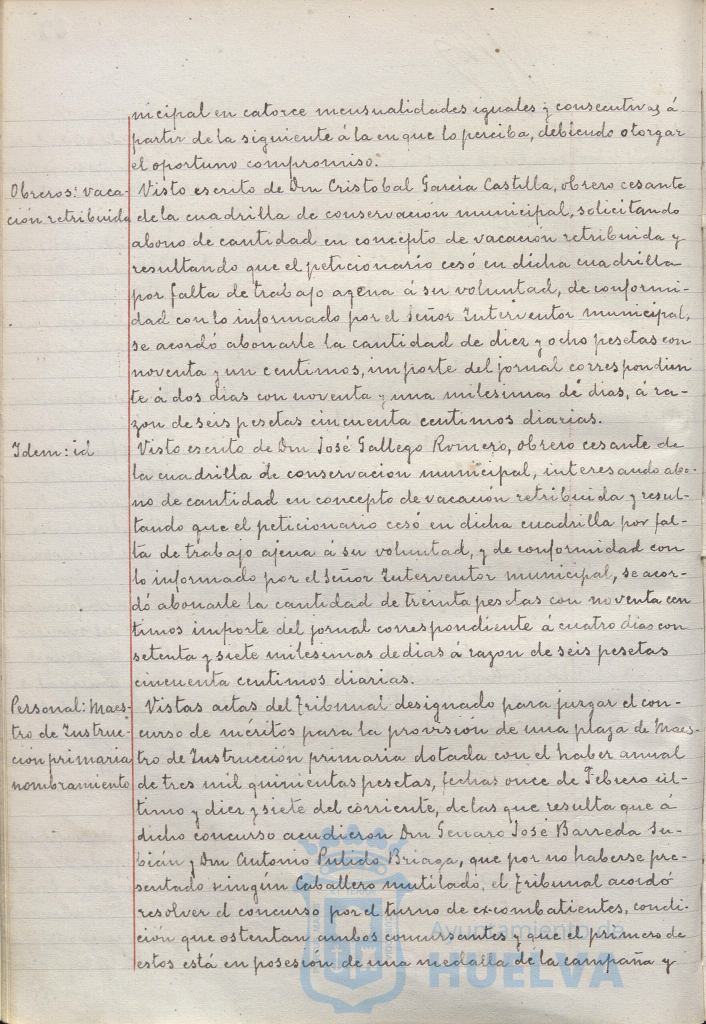 nicipal en catorce mensualidades iguales y consecutivas á
partir de la siguiente á la en que lo perciba, debiendo otorgar
el oportuno compromiso.
Obreros: vaca-
ción retribuida
Visto escrito de Don Cristobal Garcia Castilla, obrero cesante
de la cuadrilla de conservación municipal, solicitando
abono de cantidad en concepto de vacación retribuida y
resultando que el peticionario cesó en dicha cuadrilla
por falta de trabajo agena á su voluntad, de conformi-
dad con lo informado por el Señor Interventor municipal,
se acordó abonarle la cantidad de diez y ocho pesetas con
noventa y un centimos, importe del jornal correspondien
te á dos dias con noventa y una milesimas de dias, á ra-
zon de seis pesetas cincuenta centimos diarias.
Idem: id
Visto escrito de Don José Gallego Romero, obrero cesante de
la cuadrilla de conservacion municipal, interesando abo-
no de cantidad en concepto de vacación retribuida y resul-
tando que el peticionario cesó en dicha cuadrilla por fal-
ta de trabajo ajena á su voluntad, y de conformidad con
lo informado por el Señor Interventor municipal, se acor-
dó abonarle la cantidad de treinta pesetas con noventa cen
timos importe del jornal correspondiente á cuatro dias con
setenta y siete milesimas de dias á razon de seis pesetas
cincuenta centimos diarias.
Personal: Maes-
tro de Instruc-
cion primaria
nombramiento
Vistas actas del Tribunal designado para juzgar el con-
curso de méritos para la provisión de una plaza de Maes-
tro de Instrucción primaria dotada con el haber anual
de tres mil quinientas pesetas, fechas once de Febrero úl-
timo y diez y siete del corriente, de las que resulta que á
dicho concurso acudieron Don Genaro José Barreda Su-
bian y Don Antonio Pulido Briaga, que por no haberse pre-
sentado ningún Caballero mutilado, el Tribunal acordó
resolver el concurso por el turno de excombatientes, condi-
ción que ostentan ambos concursantes y que el primero de
estos está en posesión de una medalla de la campaña y
Ayuntamiento de
HUELVA